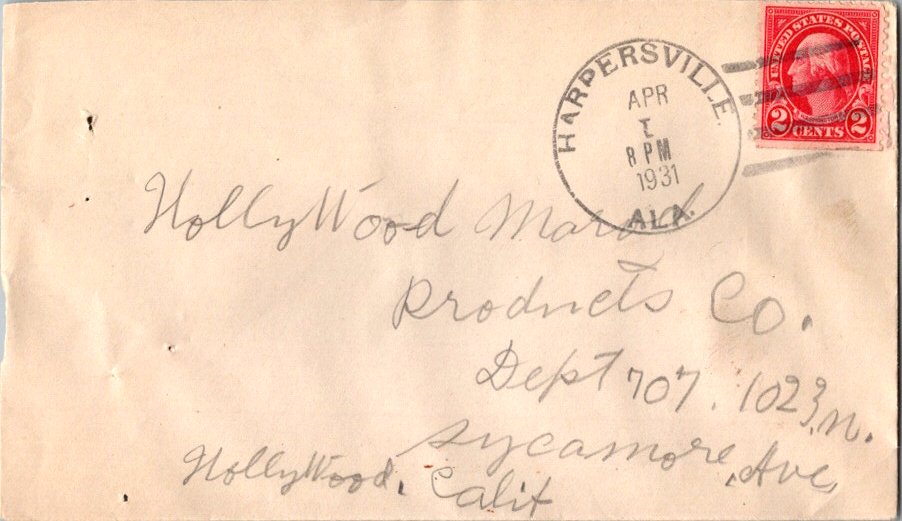 UNITED STATES POSTAGE
2 CENTS 2
HARPERSVILLE
APR
8 PM
1931
ALA.
HollyWood
Products Co.
Dept 707. 1023 N.
Sycamore Ave,
HollyWood, Calif